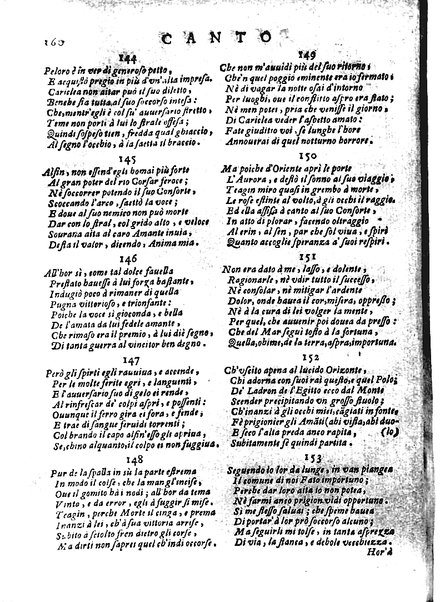 160 CANTO
144
Peloro è in ver di generoso petto,
E acquistò pregio in più d'un'alta impresa.
Cariclea non aitar può il suo diletto,
Benche sia tutta al suo soccorso intesa:
Che, mentr'egli è col su' auuersario stretto,
Teme non porti à lui lo strale offesa;
Quindi sospeso tien, fredda qual ghiaccio,
Al segno l'occhio, à la saetta il braccio.
145
Alfin, non essend'egli homai più forte
Al gran poter del rio Corsar feroce;
Nè soccorrer potendo il suo Consorte,
Scoccando l'arco, saettò la voce;
E doue al suo nemico non può morte
Dar con lo stral, col grido alto, e veloce
Sourana aita al caro Amante inuia,
Desta il valor, dicendo, Anima mia.
146
All'hor sì, come tal dolce fauella
Prestato hauesse à lui forza bastante,
Indugiò poco à rimaner di quella
Pugna vittorioso, e trionfante:
Poiche la voce sì gioconda, e bella
De l'amata da lui fedele amante,
Che rimaso era il premio, à lui diè segno,
Di tanta guerra al vincitor ben degno.
147
Però gli spirti egli rauuiua, e accende,
Per le molte ferite egri, e languenti,
E l'auuersario suo di gelo ei rende,
Al rinfrescar de' colpi aspri, e possenti:
Ouunque il ferro gira ei fora, e fende,
E trae di sangue feruidi torrenti;
Col brando il capo alfin'esso gli apriua,
Se, chino alquanto, il colpo ei non fuggiua.
148
Pur de la spalla in sù la parte estrema
In modo il colse, che la man gl'incise,
Oue il gomito hà i nodi; all'hor da tema
Vinto, e da error, egli à fuggir si mise.
Teagin, perche Morte il cinga, e prema
Inanzi à lei, ch'à sua vittoria arrise,
Subito à sciolto fren dietro gli corse.
Ma dirti non saprei quel ch'indi occorse.
149
Che non m'auuidi più del suo ritorno;
Che'n quel poggio eminente era io fermato;
Nè di vagar la notte osai d'intorno
Per luoghi, oue il conflitto aspro era stato;
Nè men potei, pria che venisse il giorno,
Di Cariclea veder l'aspetto amato:
Fate giuditio voi se lunghe l'hore
Annouerai di quel notturno horrore.
150
Ma poiche d'Oriente aprì le porte
L'Aurora, e destò il sonno al suo viaggio,
Teagin miro quasi in grembo à morte,
Le rose estinte al volto, à gli occhi il raggio.
Ed ella assisa à canto al suo Consorte,
In atto di plorar, facendo oltraggio
Al crin, al sin, par che sol viua, e spiri
Quanto accoglie speranza à suoi respiri.
151
Non era dato à me, lasso, e dolente,
Ragionarle, nè vdir tutto il successo,
Nè consolar, nè mitigar l'ardente
Dolor, onde hauea il cor, misera, oppresso;
Nè à la cura di lei volger la mente,
Per quel, che auuenir poi douea da presso:
Che del Mar seguì tosto à la fortuna
Quella, ohime, de la terra, aspra, importuna.
152
Ch'vscito apena al lucido Orizonte,
Chi adorna con suoi rai questo, e quel Polo;
De' Ladron de l'Egitto ecco dal Monte
Scender precipitando vn grosso stuolo;
Ch'inanzi à gli occhi miei, cagiati in fonte,
Fè prigionier gli Amãti (ahi vista, ahi duo-
E seco l'alta preda anco rapita, (lo)
Subitamente fè quindi partita.
153
Seguendo lo lor da lunge, in van piangea
Il comune di noi Fato importuno;
Perche dar loro aita io non potea,
Nè farmi anco prigion vidi opportuno.
Sì me stesso saluai; che speme hauea
Di portar'à lor prò soccorso alcuno;
Ma seguirli mi tolse, in tanta asprezza
Di via, la stanca, e debole vecchiezza.
Hor'à